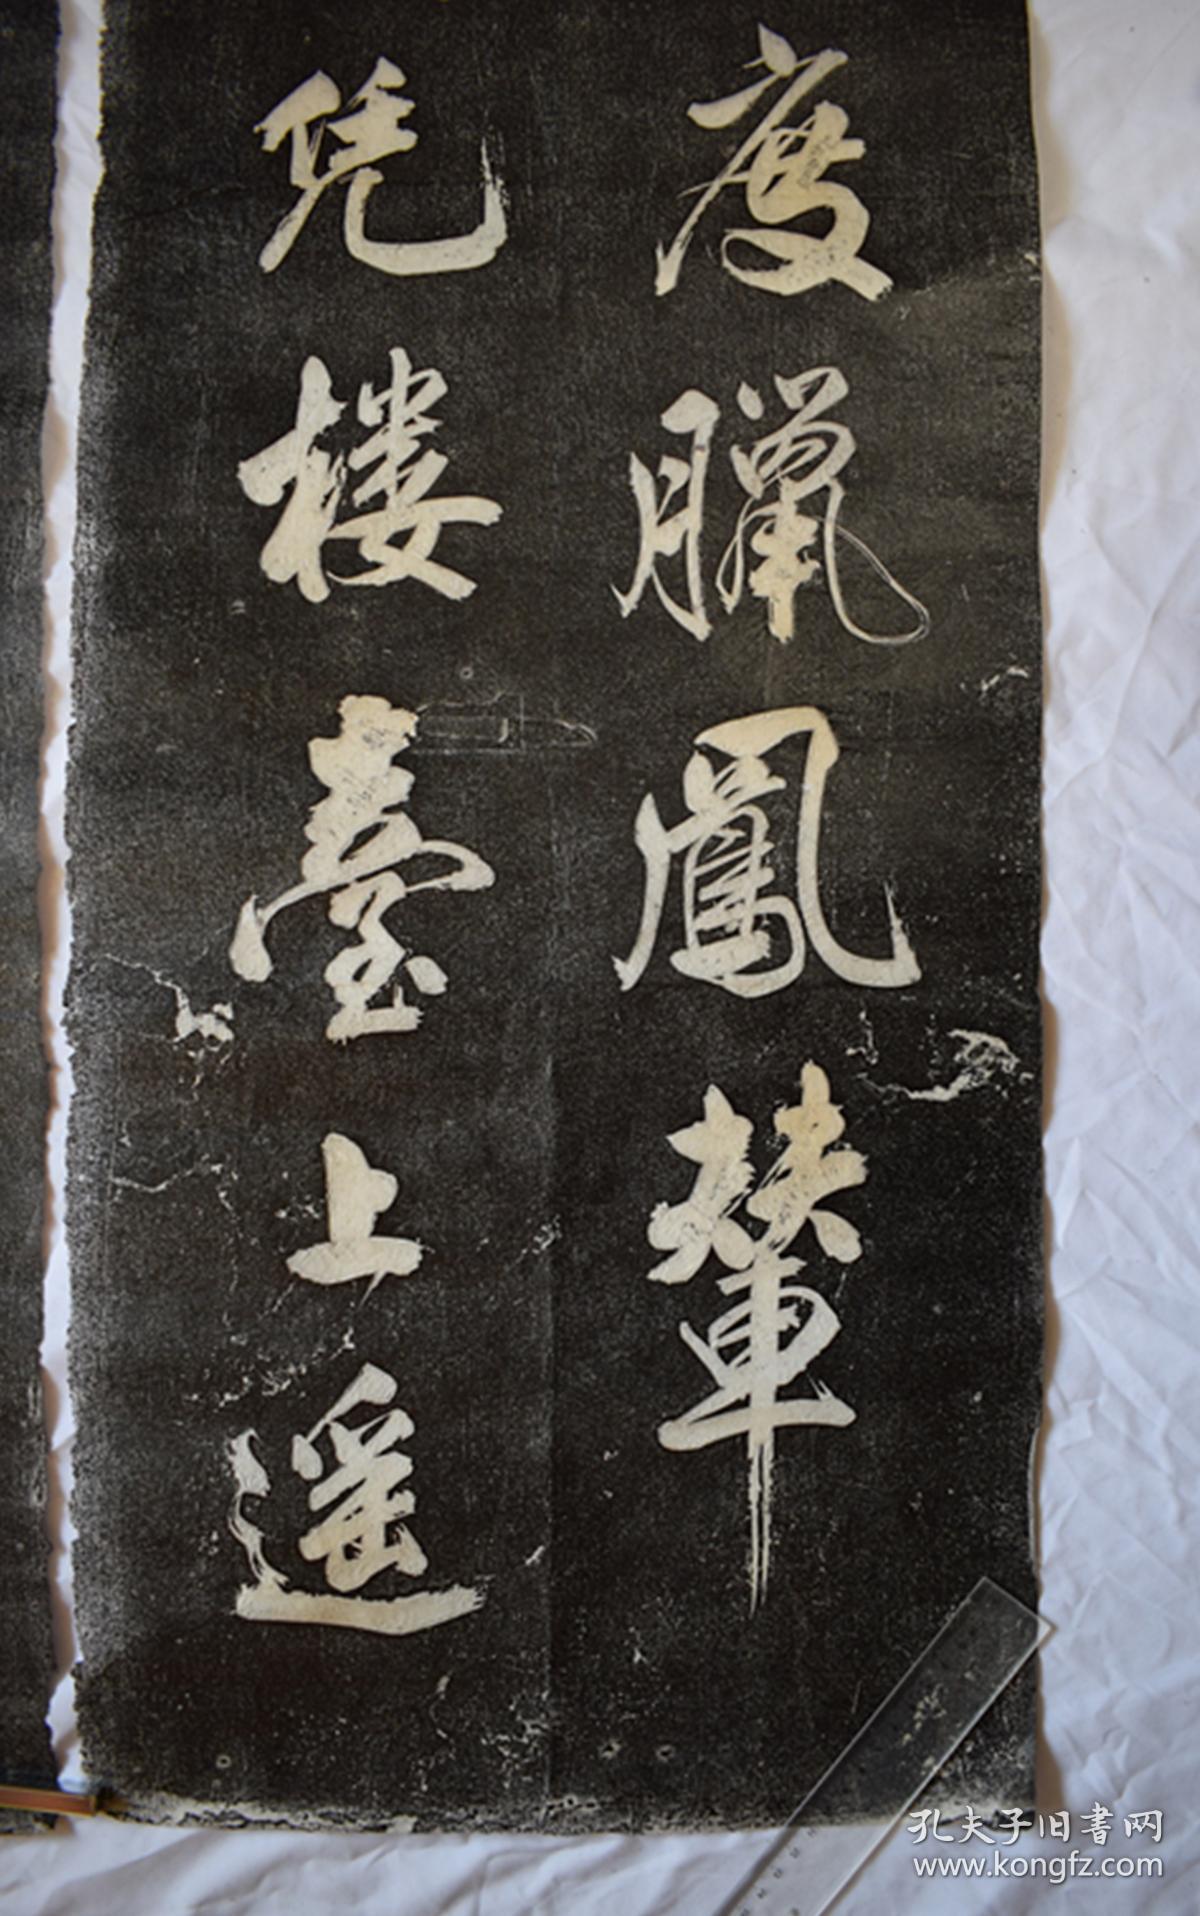 度臘鳳輦
凭樓臺上遥
孔夫子旧書网
www.kongfz.com